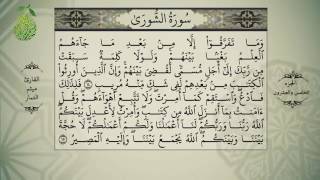 سُورَةُ الشُّورَىٰ
وَمَا تَفَرَّقُوٓا۟ إِلَّا مِنۢ بَعْدِ مَا جَآءَهُمُ
ٱلْعِلْمُ بَغْيًۢا بَيْنَهُمْ وَلَوْلَا كَلِمَةٌ سَبَقَتْ
مِن رَّبِّكَ إِلَىٰٓ أَجَلٍ مُّسَمًّى لَّقُضِىَ بَيْنَهُمْ وَإِنَّ ٱلَّذِينَ أُورِثُوا۟
ٱلْكِتَٰبَ مِنۢ بَعْدِهِمْ لَفِى شَكٍّ مِّنْهُ مُرِيبٍ ١٤ فَلِذَٰلِكَ
فَٱدْعُ وَٱسْتَقِمْ كَمَآ أُمِرْتَ وَلَا تَتَّبِعْ أَهْوَآءَهُمْ وَقُلْ
ءَامَنتُ بِمَآ أَنزَلَ ٱللَّهُ مِن كِتَٰبٍ وَأُمِرْتُ لِأَعْدِلَ بَيْنَكُمُ
ٱللَّهُ رَبُّنَا وَرَبُّكُمْ لَنَآ أَعْمَٰلُنَا وَلَكُمْ أَعْمَٰلُكُمْ لَا حُجَّةَ
بَيْنَنَا وَبَيْنَكُمُ ٱللَّهُ يَجْمَعُ بَيْنَنَا وَإِلَيْهِ ٱلْمَصِيرُ ١٥
القارئ
ميثم
التمار
الجزء
الخامس والعشرون